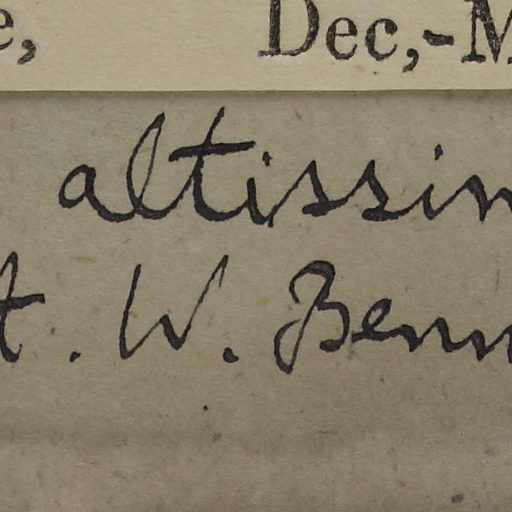 e, Dec,-M
altissim
A. W. Benn